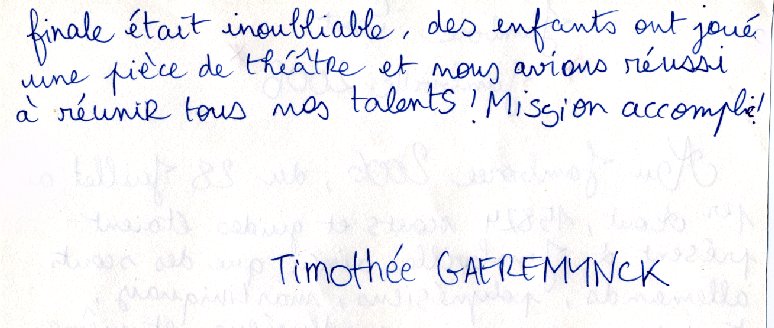 finale était inoubliable, des enfants ont joué
une pièce de théâtre et nous avions réussi
à réunir tous nos talents ! Mission accomplie !
Timothée GAEREMYNCK